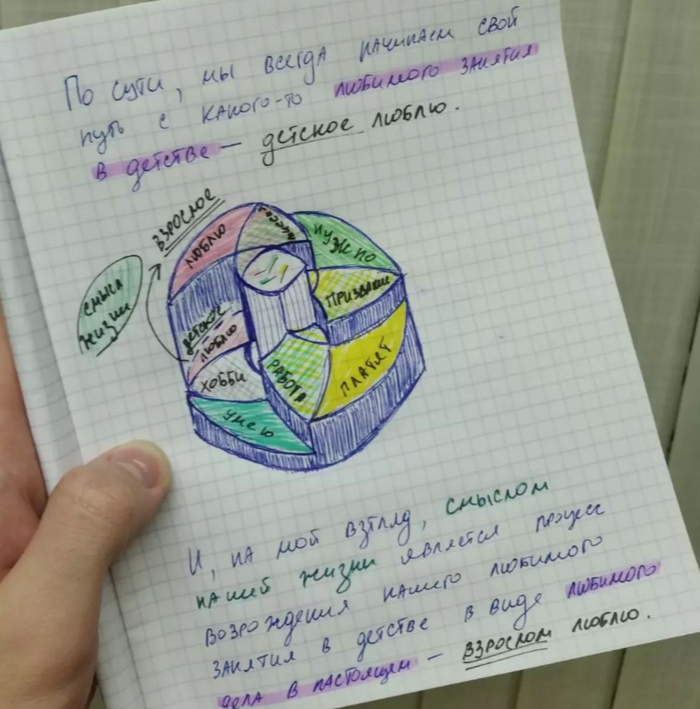 По сути, мы всегда начинаем свой
путь с какого-то любимого занятия
в детстве — детское люблю.
взрослое
люблю
нужно
смысл
жизни
призвание
детское
люблю
хобби
работа
платят
умею
И, на мой взгляд, смыслом
нашей жизни является процесс
возрождения нашего любимого
занятия в детстве в виде любимого
дела в настоящем — взрослом люблю.